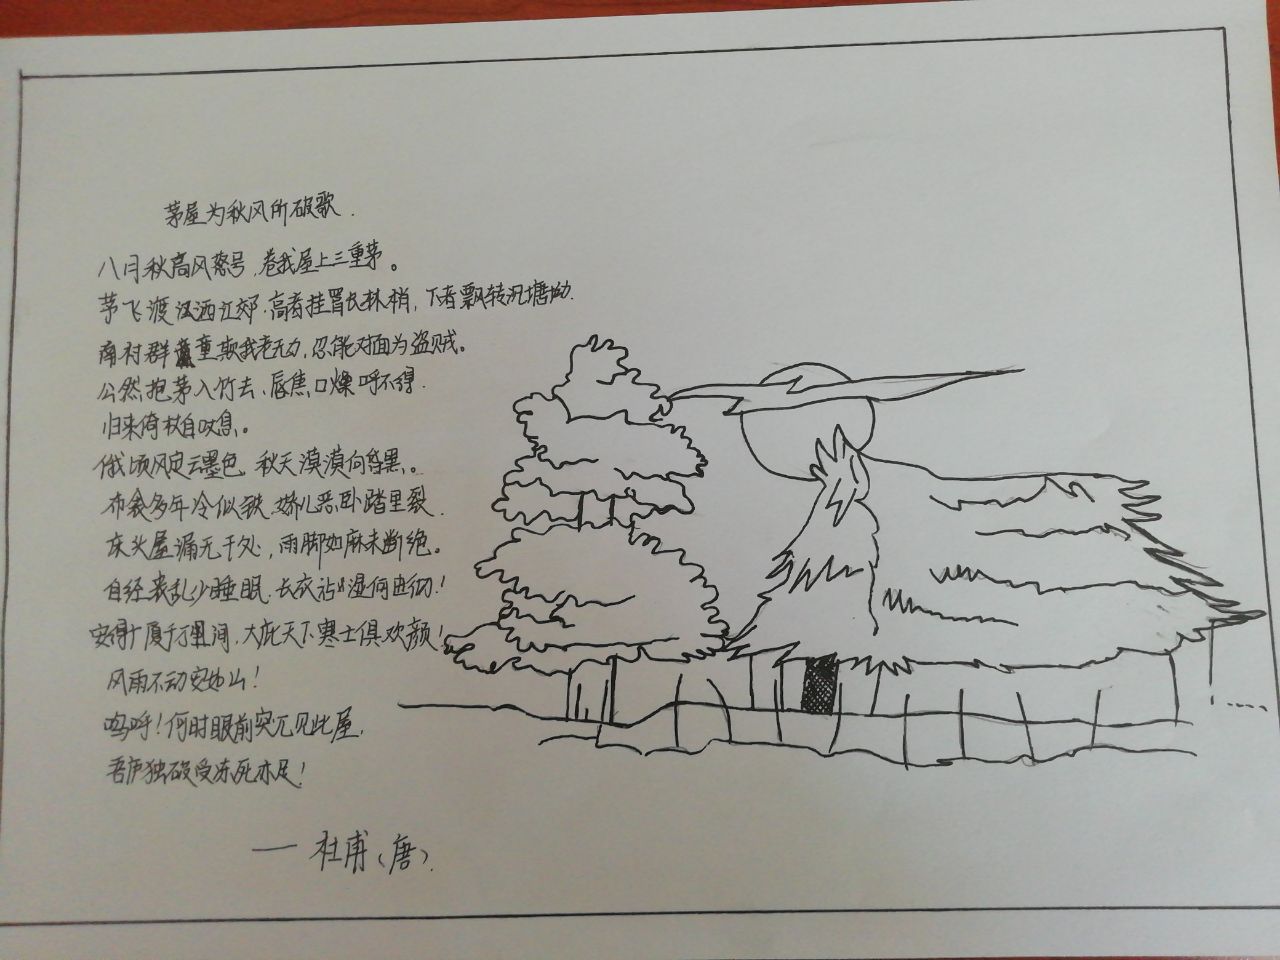 茅屋为秋风所破歌.
八月秋高风怒号,卷我屋上三重茅。
茅飞渡江洒江郊,高者挂罥长林梢,下者飘转沉塘坳.
南村群童欺我老无力,忍能对面为盗贼。
公然抱茅入竹去,唇焦口燥呼不得.
归来倚杖自叹息。
俄顷风定云墨色,秋天漠漠向昏黑。
布衾多年冷似铁,娇儿恶卧踏里裂.
床头屋漏无干处,雨脚如麻未断绝。
自经丧乱少睡眠,长夜沾湿何由彻!
安得广厦千万间,大庇天下寒士俱欢颜!
风雨不动安如山!
呜呼!何时眼前突兀见此屋,
吾庐独破受冻死亦足!
——杜甫(唐).